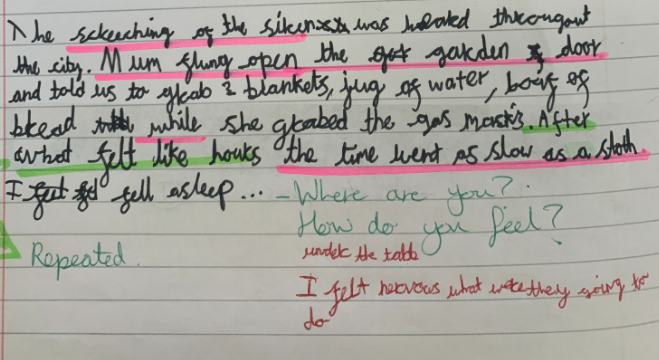 The sckeeching of the sikens was heared througout
the city. Mum flung open the gar garden door
and told us to gkab 2 blankets, jug of water, loaf of
bkead while she gkabed the gas masks. After
what felt like houks the time went as slow as a sloth.
I fell asleep... - Where are you?
How do you feel?
Repeated.
undek the table
I felt nervous what weke they going to
do